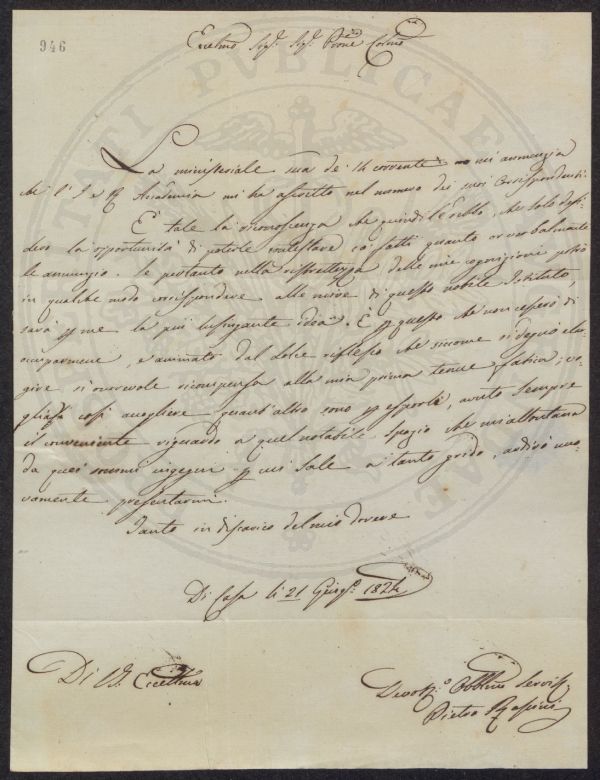 946
Ecclmo Sigr. Sigr. Prone Colmo
La ministeriale sua de 14 corrente mi annunzia
che l' I e R Accademia mi ha ascritto nel numero dei suoi Corrispondenti.
E tale la riconoscenza che quindi le debbo, che solo desi-
dero la opportunità di poterle contestare co' fatti quanto or verbalmente
le annunzio. Se pertanto nella ristrettezza delle mie cognizioni potrò
in qualche modo corrispondere alle mire di questo nobile Istituto,
sarà p me la più lusingante idea. E p questo che non cesserò di
occuparmene, e animato dal dolce riflesso che siccome si degnò elar-
gire sì onorevole ricompensa alla mia prima tenue fatica; vo-
così accogliere quant'altro sono p esporle, avuto sempre
il conveniente riguardo a quel notabile spazio che mi allontana
da quei sommi ingegni p cui sale a tanto grido, ardirò nuo-
vamente presentarmi.
Tanto in discarico del mio dovere
Di Casa li 21 Giugo. 1824
Di V. Eccellma
Devotmo. Obblmo Servitr
Pietro
PUBLICAE